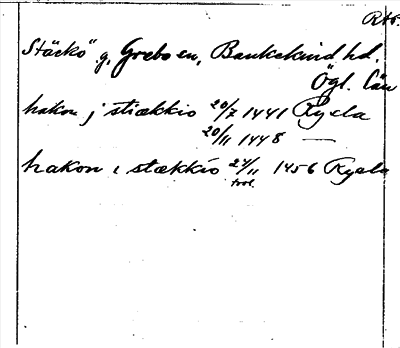 Rtk.
Stäckö g, Grebo sn, Bankekind hd.
Ögl. län
hakon j stiækkio 20/7 1441 Ryela
20/11 1448 —
hakon i stækkio 24/11 1456 Ryela